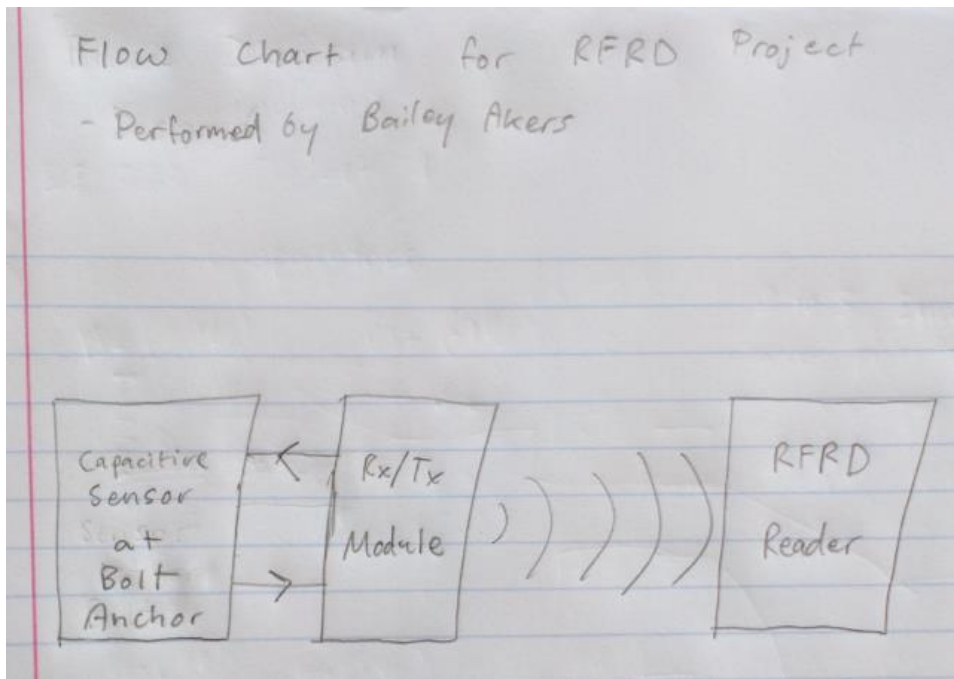 Flow Chart for RFRD Project
- Performed by Bailey Akers
Capacitive
Sensor
at
Bolt
Anchor
Rx/Tx
Module
RFRD
Reader